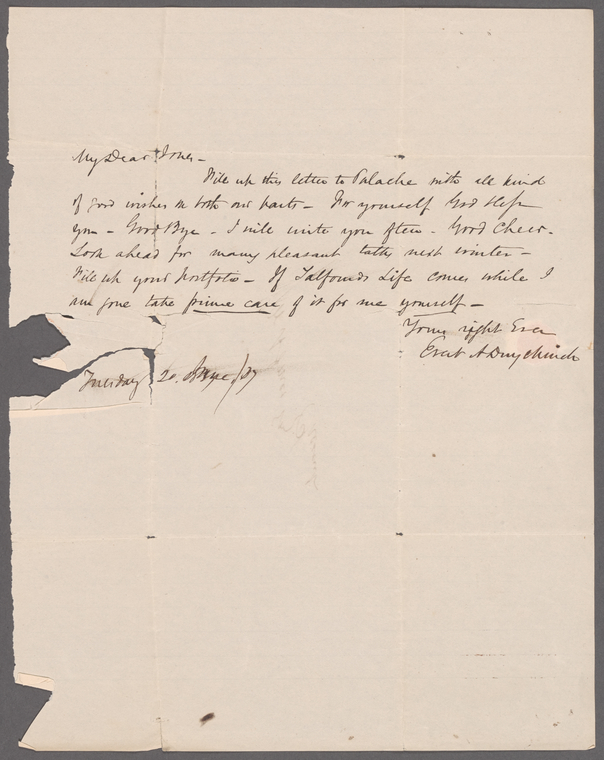 My Dear Jones –
File up this letter to Palache with all kind
of good wishes on both our parts – For yourself God Help
you – Good Bye – I will write you often – Good Cheer –
Look ahead for many pleasant talks next winter –
File up your Portfolio – If Talfourds Life comes while I
am gone take prime care of it for me yourself –
Yours right Ever
Evert A Duyckinck
Tuesday 20. /37